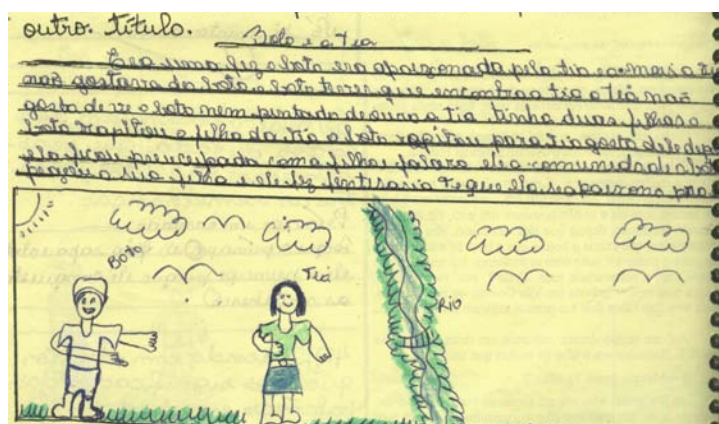 outro. título.
Boto e a Tia
Era uma fez o boto era apaixonada pela tia e a mais a tia
não gostava do boto o boto teves que encontra a tia a tia não
gosta de ve o boto nem pintado de ouro a tia tinha duas filhas o
boto a filha da tia o boto para tia gosta dele
ela ficou preucupada com a filha falara a comunidade o boto
pegou a sua filha e ele fez que ela apaixona pro
Boto
Tia
Rio